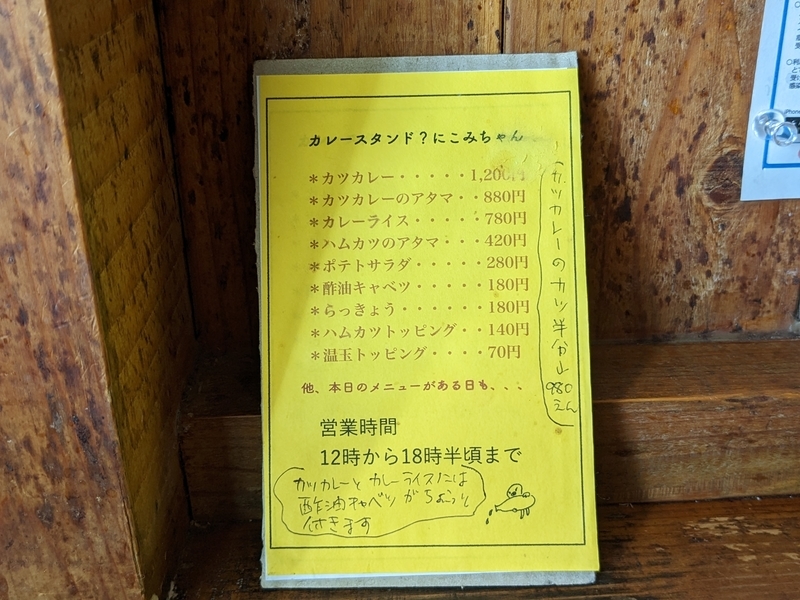 カレースタンド？にこみちゃん
＊カツカレー・・・・・1,200円
＊カツカレーのアタマ・・880円
＊カレーライス・・・・・780円
＊ハムカツのアタマ・・・420円
＊ポテトサラダ・・・・・280円
＊酢油キャベツ・・・・・180円
＊らっきょう・・・・・・180円
＊ハムカツトッピング・・140円
＊温玉トッピング・・・・70円
他、本日のメニューがある日も、、、
営業時間
12時から18時半頃まで
カツカレーとカレーライスには
酢油キャベツがちょこっと
付きます
「カツカレーのカツ半分」
980
えん